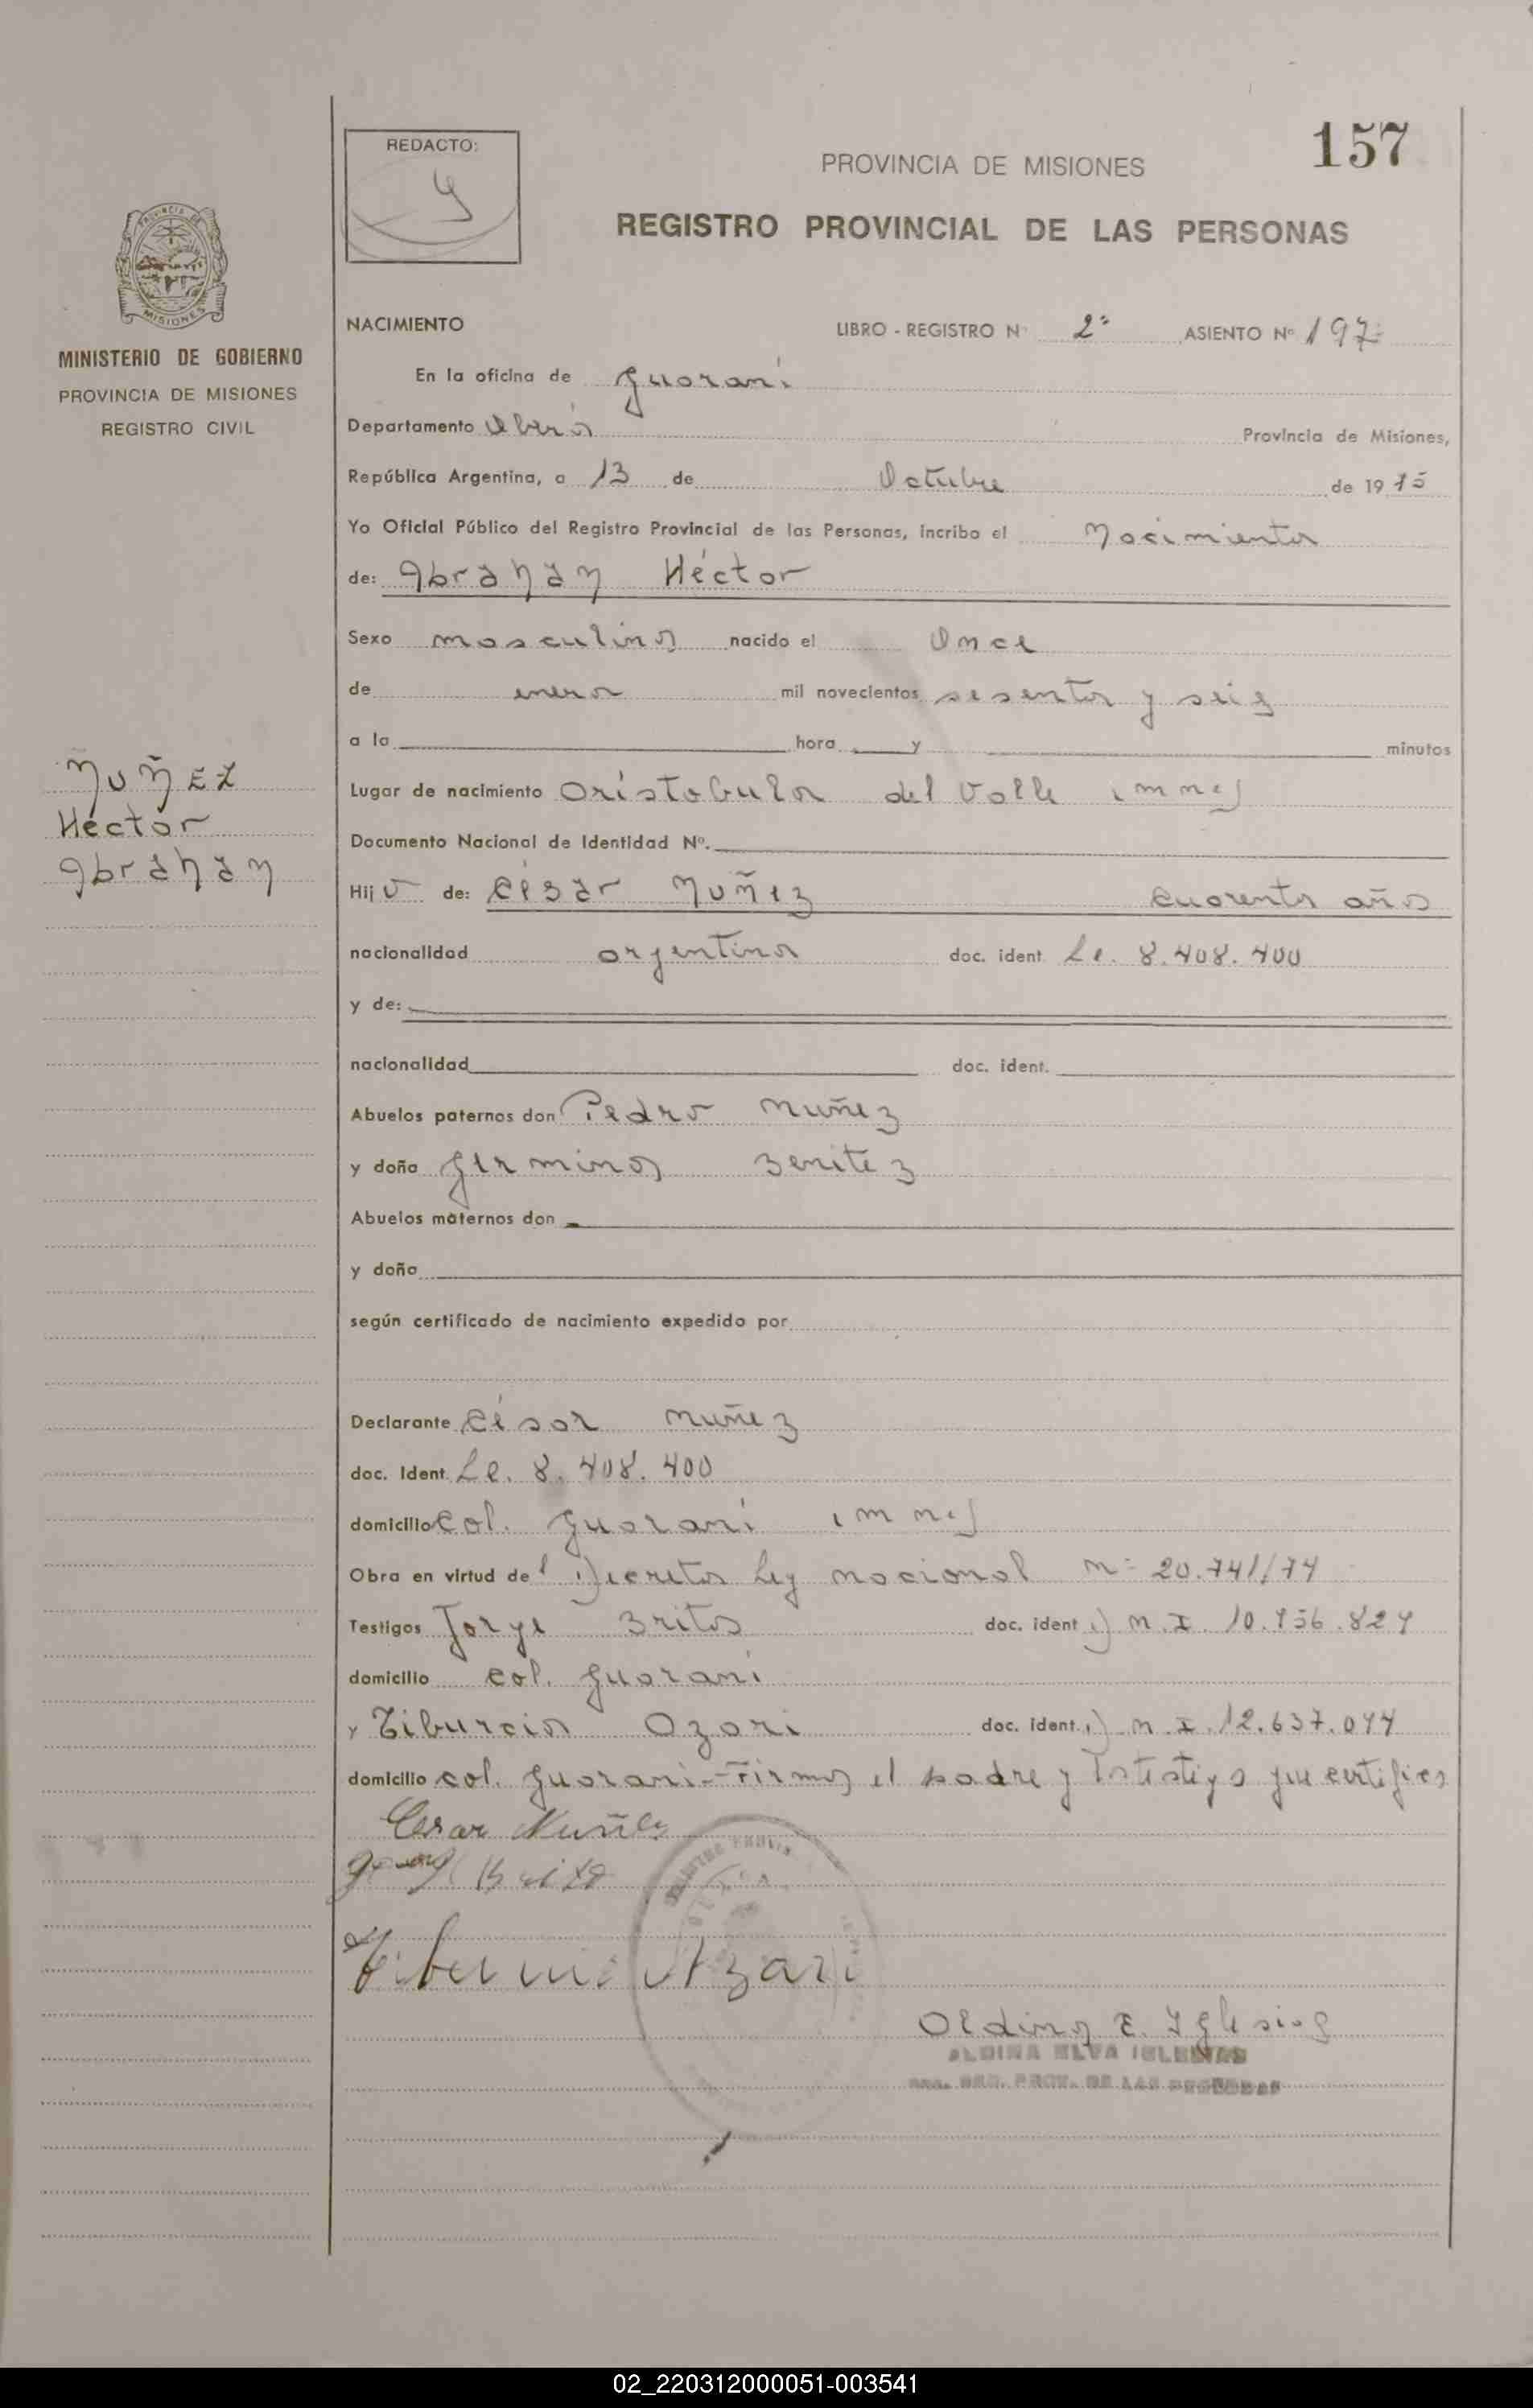 157
REDACTO:
PROVINCIA DE MISIONES
REGISTRO PROVINCIAL DE LAS PERSONAS
MINISTERIO DE GOBIERNO
PROVINCIA DE MISIONES
REGISTRO CIVIL
NACIMIENTO LIBRO - REGISTRO Nº 2º ASIENTO Nº 197
En la oficina de Guaraní
Departamento Oberá Provincia de Misiones,
República Argentina, a 13 de Octubre de 1975
Yo Oficial Público del Registro Provincial de las Personas, incribo el Nacimiento
de: Abrahan Héctor
Sexo masculino nacido el Once
de enero mil novecientos sesenta y seis
a la hora y minutos
MUÑEZ
Héctor
Abrahan
Lugar de nacimiento Aristobulo del Valle (mnes)
Documento Nacional de Identidad Nº.
Hijo de: César Muñez cuarenta años
nacionalidad argentina doc. ident. Le. 8.408.400
y de:
nacionalidad doc. ident.
Abuelos paternos don Pedro Muñez
y doña Germina Benitez
Abuelos maternos don
y doña
según certificado de nacimiento expedido por
Declarante César Muñez
doc. Ident. Le. 8.408.400
domicilio Col. Guaraní (mnes)
Obra en virtud del Decreto Ley nacional Nº 20.741/74
Testigos Jorge Brito doc. ident D.N.I.
domicilio col. Guaraní
y Tiburcio Azari doc. ident. D.N.I. 12.637.044
domicilio col. Guaraní - Firman el padre y testigos que certifico
Cesar Nuñez
Tiburcio Azari
Aldina E. Iglesias
ALDINA ELVA IGLESIAS
REG. PROV. DE LAS PERSONAS
02_220312000051-003541